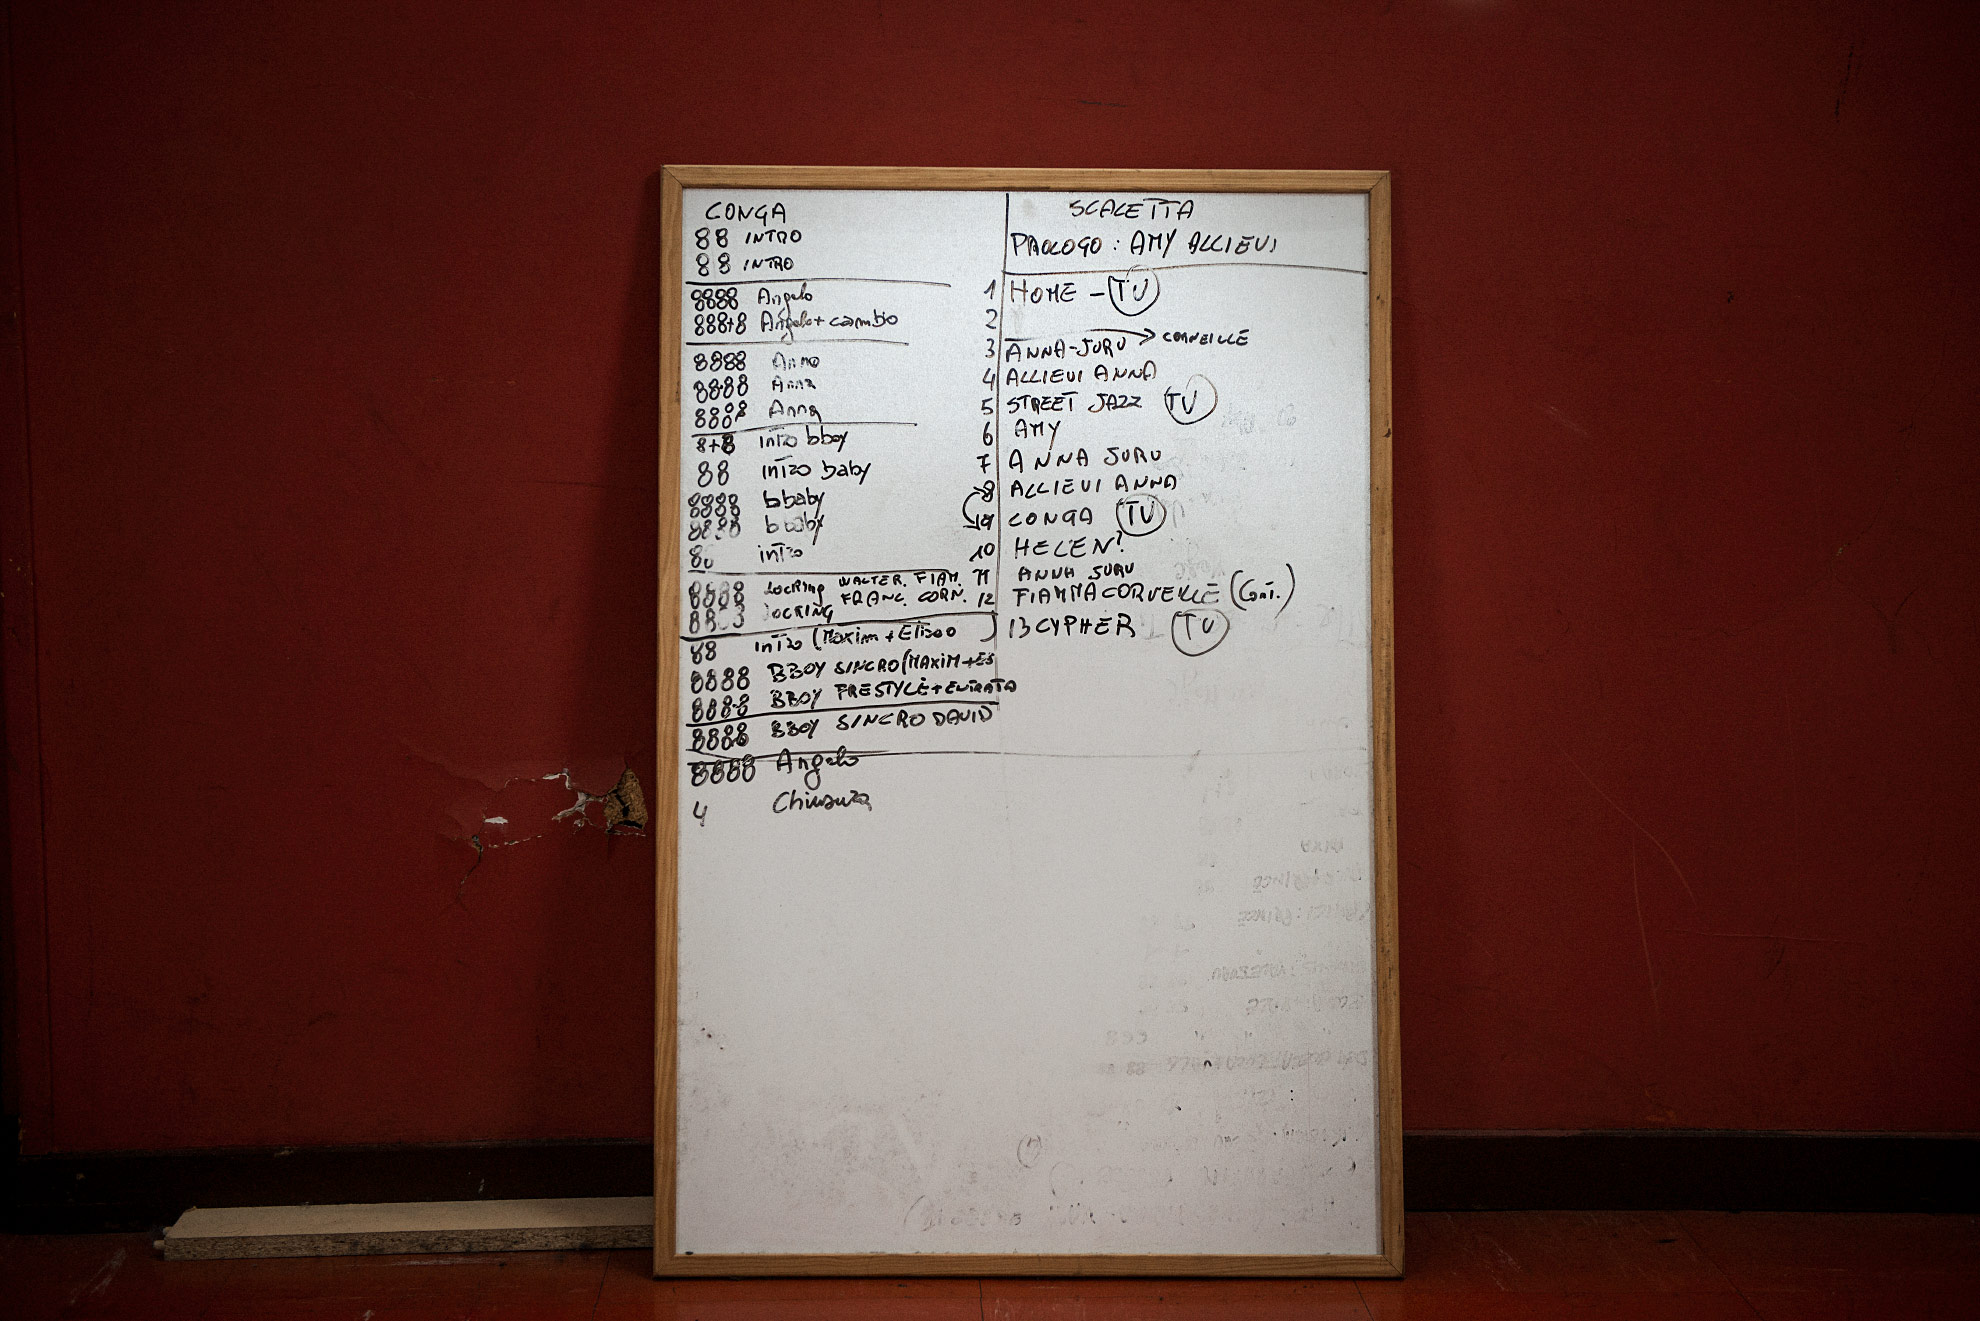 CONGA
88 INTRO
88 INTRO
8888 Angelo
888+8 Angelo + cambio
8888 Anna
8888 Anna
8888 Anna
8+8 intro bboy
88 intro baby
8888 bbaby
8888 bbaby
8 intro
8888 Locking WALTER. FIAM.
8888 LOCKING FRANC. CORN.
88 intro (Maxim + Eliseo)
8888 BBOY SINCRO (MAXIM + ES
8888 BBOY FRESTYLE + ENTRATA
8888 BBOY SINCRO DAVID
8888 Angelo
4 Chiusura
SCALETTA
PROLOGO: AMY ALLIEVI
1 HOME - TV
2
3 ANNA-JURU → CORNEILLE
4 ALLIEVI ANNA
5 STREET JAZZ TV
6 AMY
7 ANNA JURU
8 ALLIEVI ANNA
9 CONGA TV
10 HELEN?
11 ANNA JURU
12 FIAMMA CORNEILLE (Cont.)
13 CYPHER TV